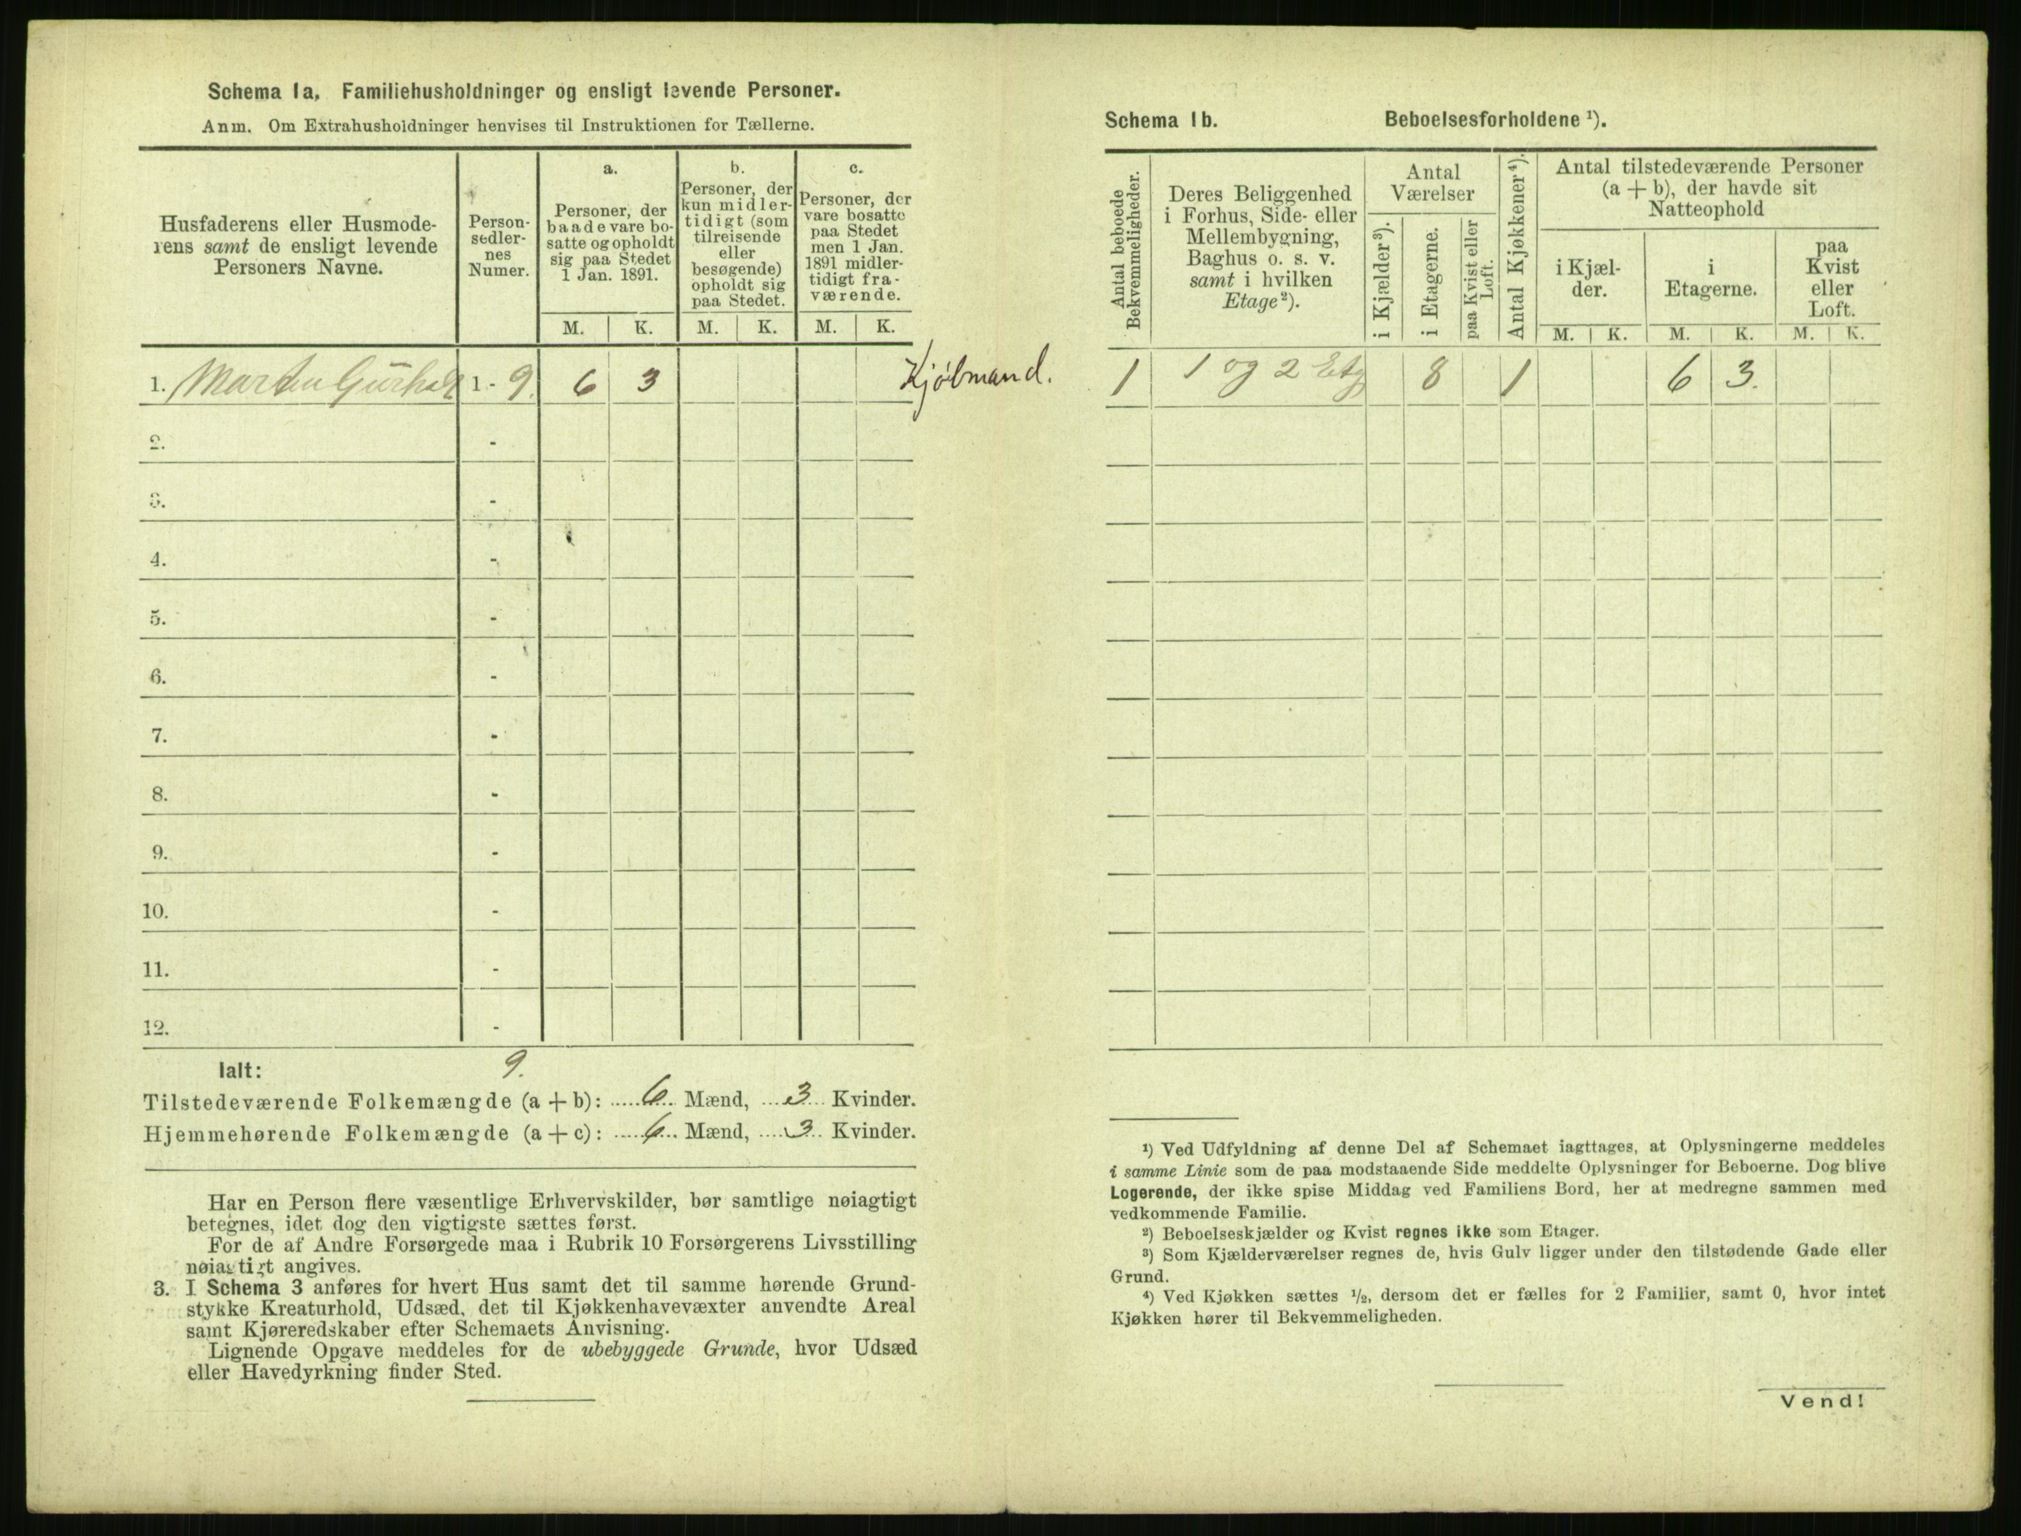 Schema 1a. Familiehusholdninger og ensligt levende Personer.
Anm. Om Extrahusholdninger henvises til Instruktionen for Tællerne.
Husfaderens eller Husmode-
rens samt de ensligt levende
Personers Navne.
Person-
sedler-
nes
Numer.
a.
Personer, der
baade vare bo-
satte og opholdt
sig paa Stedet
1 Jan. 1891.
b.
Personer, der
kun midler-
tidigt (som
tilreisende
eller
besøgende)
opholdt sig
paa Stedet.
c.
Personer, der
vare bosatte
paa Stedet
men 1 Jan.
1891 midler-
tidigt fra-
værende.
M. K. M. K. M. K.
1. Martin 1 - 9. 6 3 Kjøbmand.
2. -
3. -
4. -
5. -
6. -
7. -
8. -
9. -
10. -
11. -
12. -
Ialt: 9.
Tilstedeværende Folkemængde (a + b): 6 Mænd, 3 Kvinder.
Hjemmehørende Folkemængde (a + c): 6 Mænd, 3 Kvinder.
Har en Person flere væsentlige Erhvervskilder, bør samtlige nøiagtigt
betegnes, idet dog den vigtigste sættes først.
For de af Andre Forsørgede maa i Rubrik 10 Forsørgerens Livsstilling
nøiagtigt angives.
3. I Schema 3 anføres for hvert Hus samt det til samme hørende Grund-
stykke Kreaturhold, Udsæd, det til Kjøkkenhavevæxter anvendte Areal
samt Kjøreredskaber efter Schemaets Anvisning.
Lignende Opgave meddeles for de ubebyggede Grunde, hvor Udsæd
eller Havedyrkning finder Sted.
Schema 1b. Beboelsesforholdene ¹).
Antal beboede
Bekvemmeligheder.
Deres Beliggenhed
i Forhus, Side- eller
Mellembygning,
Baghus o. s. v.
samt i hvilken
Etage²).
Antal
Værelser
i Kjælder³).
i Etagerne.
paa Kvist eller
Loft.
Antal Kjøkkener⁴).
Antal tilstedeværende Personer
(a + b), der havde sit
Natteophold
i Kjæl-
der.
i
Etagerne.
paa
Kvist
eller
Loft.
M. K. M. K. M. K.
1 1 og 2 Etg 8 1 6 3.
¹) Ved Udfyldning af denne Del af Schemaet iagttages, at Oplysningerne meddeles
i samme Linie som de paa modstaaende Side meddelte Oplysninger for Beboerne. Dog blive
Logerende, der ikke spise Middag ved Familiens Bord, her at medregne sammen med
vedkommende Familie.
²) Beboelseskjælder og Kvist regnes ikke som Etager.
³) Som Kjælderværelser regnes de, hvis Gulv ligger under den tilstødende Gade eller
Grund.
⁴) Ved Kjøkken sættes ¹/₂, dersom det er fælles for 2 Familier, samt 0, hvor intet
Kjøkken hører til Bekvemmeligheden.
Vend!